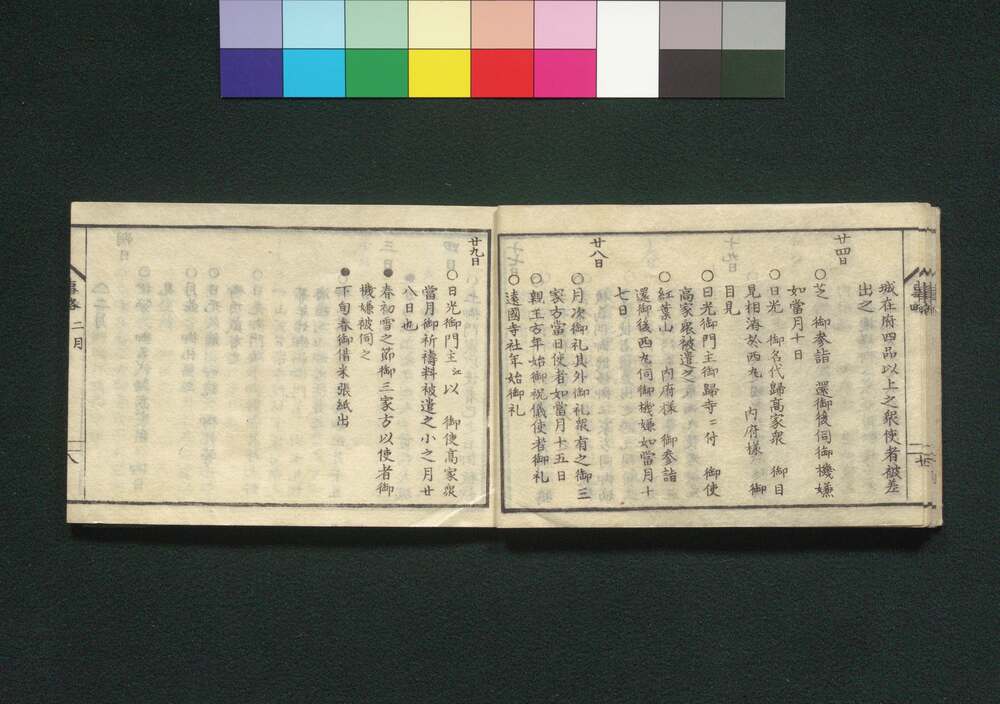 城在府四品以上之衆使者被差
出之
廿四日
○芝　御参詣　還御後伺御機嫌
如當月十日
○日光　御名代歸高家衆　御目
見相濟於西丸　内府様　御
目見
○日光御門主御歸寺ニ付　御使
高家衆被遣之
○紅葉山　内府様　御参詣
還御後西丸伺御機嫌如當月十
七日
廿八日
○月次御礼其外御礼衆有之御三
家方當日使者如當月十五日
○親王方年始御祝儀使者御礼
○遠國寺社年始御礼
廿九日
○日光御門主江以　御使高家衆
當月御祈禱料被遣之小之月廿
八日也
●春初雪之節御三家方以使者御
機嫌被伺之
●下旬春御借米張紙出
二月